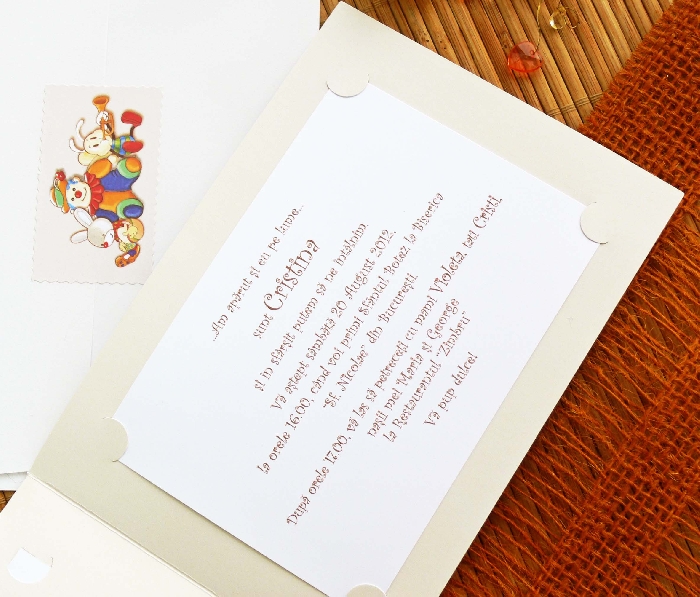 ...Am apărut și eu pe lume...
sunt Cristina
și în sfârșit putem să ne întâlnim
Vă aștept sâmbătă 20 August 2012,
la orele 16.00, când voi primi Sfântul Botez la Biserica
"Sf. Nicolae" din București.
După orele 17.00, vă las să petreceți cu mami Violeta, tati Cristi,
nașii mei Maria și George
la Restaurantul "Zimbrii"
Vă pup dulce!